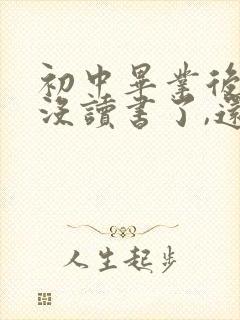 初中畢業後
沒讀書了,還
人生起步